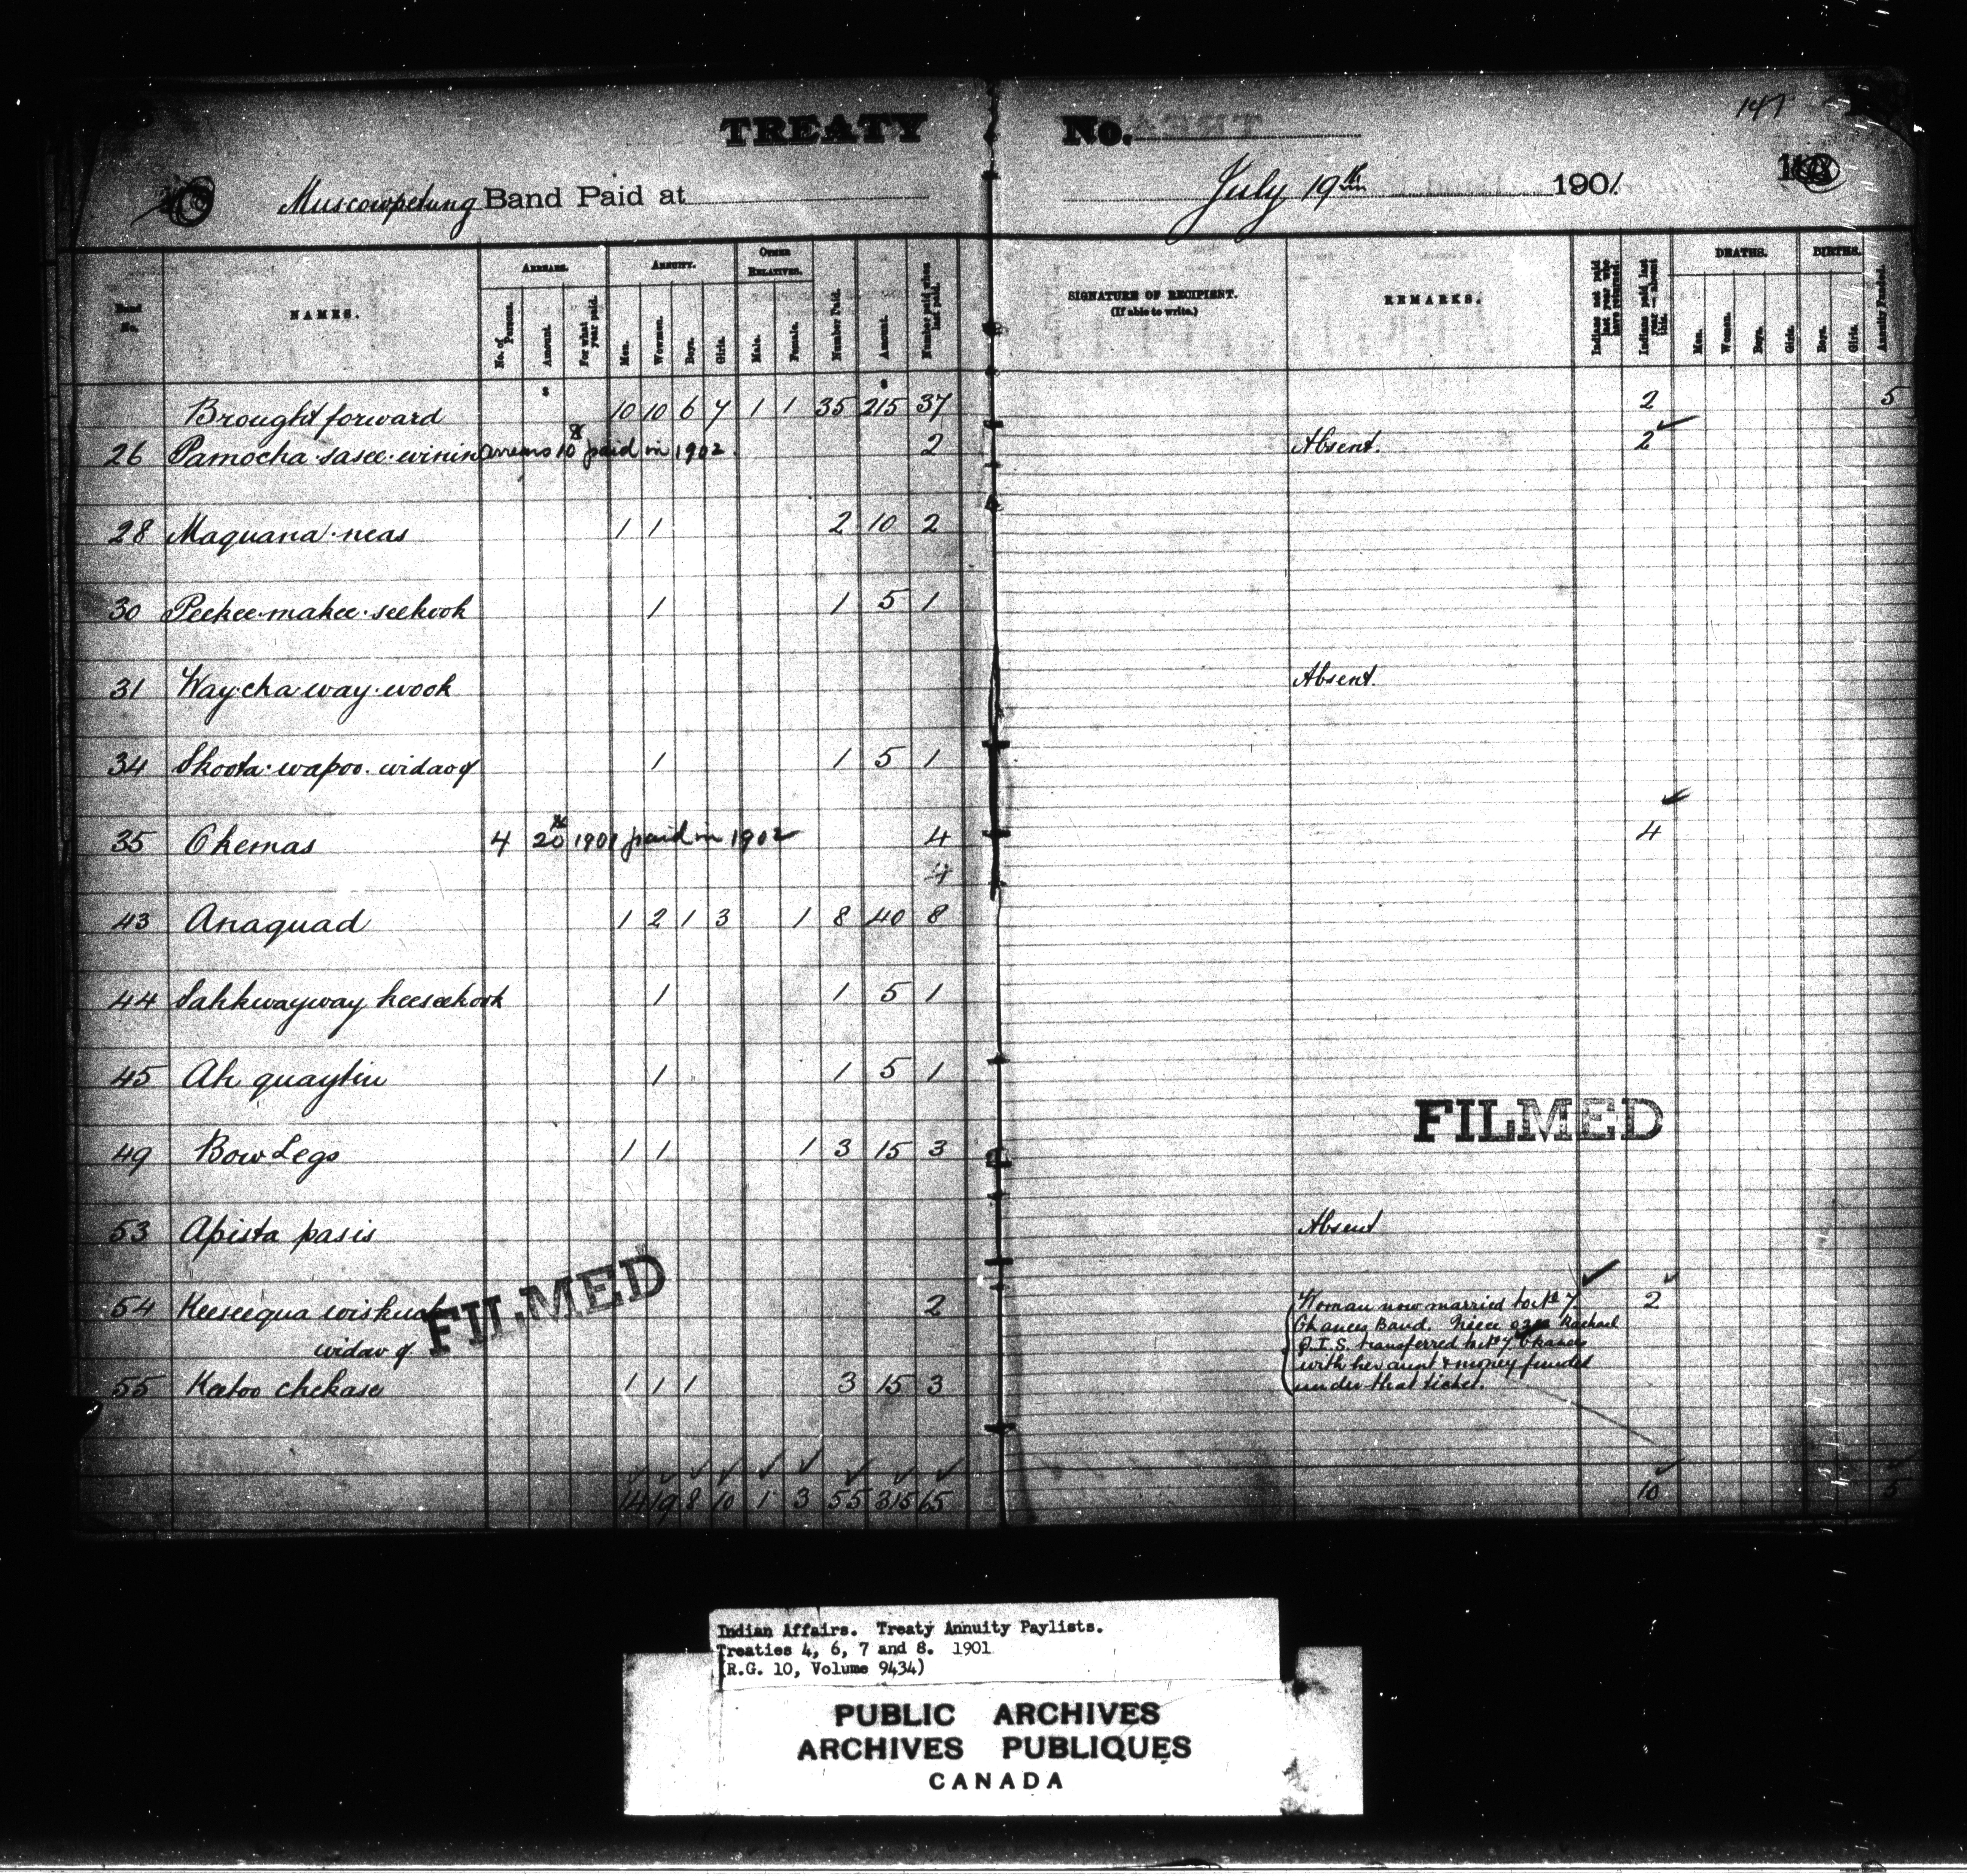 147
TREATY No.
Muscowpetung Band Paid at July 19th 1901.
No. NAMES. ARREARS. ANNUITY. OTHER RELATIVES. Number Paid. Amount. Number paid when last paid. SIGNATURE OF RECIPIENT. REMARKS. Indians not paid last year who have returned. Indians paid last year — absent this. DEATHS. BIRTHS. Annuity Funded.
(If able to write.)
No. of Persons. Amount. For what year paid. Men. Women. Boys. Girls. Male. Female. Men. Women. Boys. Girls. Boys. Girls.
Brought forward 10 10 6 7 1 1 35 215 37 2 5
26 Pamocha·sasee·winin arrears 10 paid in 1902. 2 Absent. 2
28 Maquana·neas 1 1 2 10 2
30 Peekee·makee·seekook 1 1 5 1
31 Way·cha way·wook Absent.
34 Skoota·wapoo·widow of 1 1 5 1
35 Chemas 4 20 1901 paid in 1902 4 4
4
43 Anaquad 1 2 1 3 1 8 40 8
44 Sahkwayway keeseekook 1 1 5 1
45 Ah quaytin 1 1 5 1
49 Bow Legs 1 1 1 3 15 3
FILMED
53 Apista pasis Absent
54 Keeseequa wiskwah 2 Woman now married to No 7 2
widow of Chances Band. Niece Rachael
Q.I.S. transferred to No 7 Chances
with her aunt & money funded
under that ticket.
55 Katoo chekase 1 1 1 3 15 3
FILMED
14 19 8 10 1 3 55 315 65 10 5
Indian Affairs. Treaty Annuity Paylists.
Treaties 4, 6, 7 and 8. 1901
(R.G. 10, Volume 9434)
PUBLIC ARCHIVES
ARCHIVES PUBLIQUES
CANADA